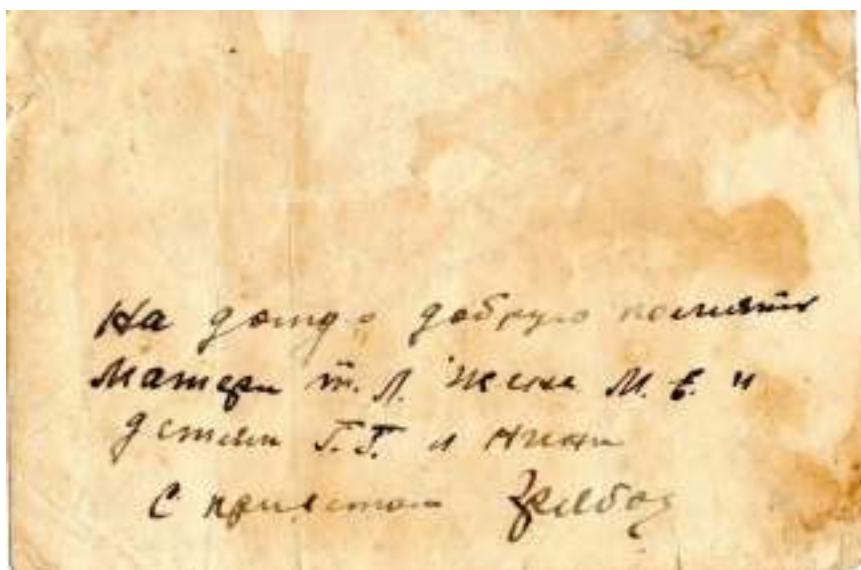 На добрую память
Матери т. Л. жене М. Е. и
детям Г. Г. и Нине
С приветом